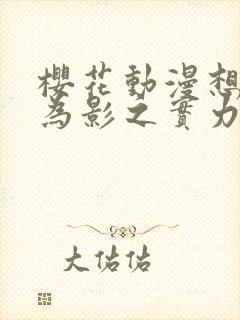 櫻花動漫想
為影之實力
大佑佑